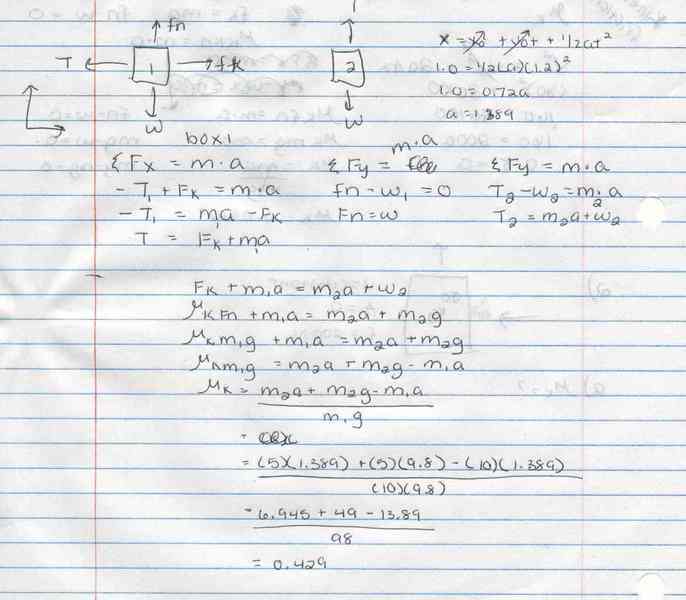 fn
T 1 fk
w
2
w
x = x₀ + v₀t + 1/2at²
1.0 = 1/2(a)(1.2)²
1.0 = 0.72a
a = 1.389
box 1
ΣFx = m·a
- T₁ + Fk = m·a
- T₁ = m₁a - Fk
T = Fk + m₁a
m·a
ΣFy =
fn - w₁ = 0
Fn = w
ΣFy = m·a
T₂ - w₂ = m₂·a
T₂ = m₂a + w₂
Fk + m₁a = m₂a + w₂
μk Fn + m₁a = m₂a + m₂g
μk m₁g + m₁a = m₂a + m₂g
μk m₁g = m₂a + m₂g - m₁a
μk = m₂a + m₂g - m₁a
m₁g
=
= (5)(1.389) + (5)(9.8) - (10)(1.389)
(10)(9.8)
= 6.945 + 49 - 13.89
98
= 0.429